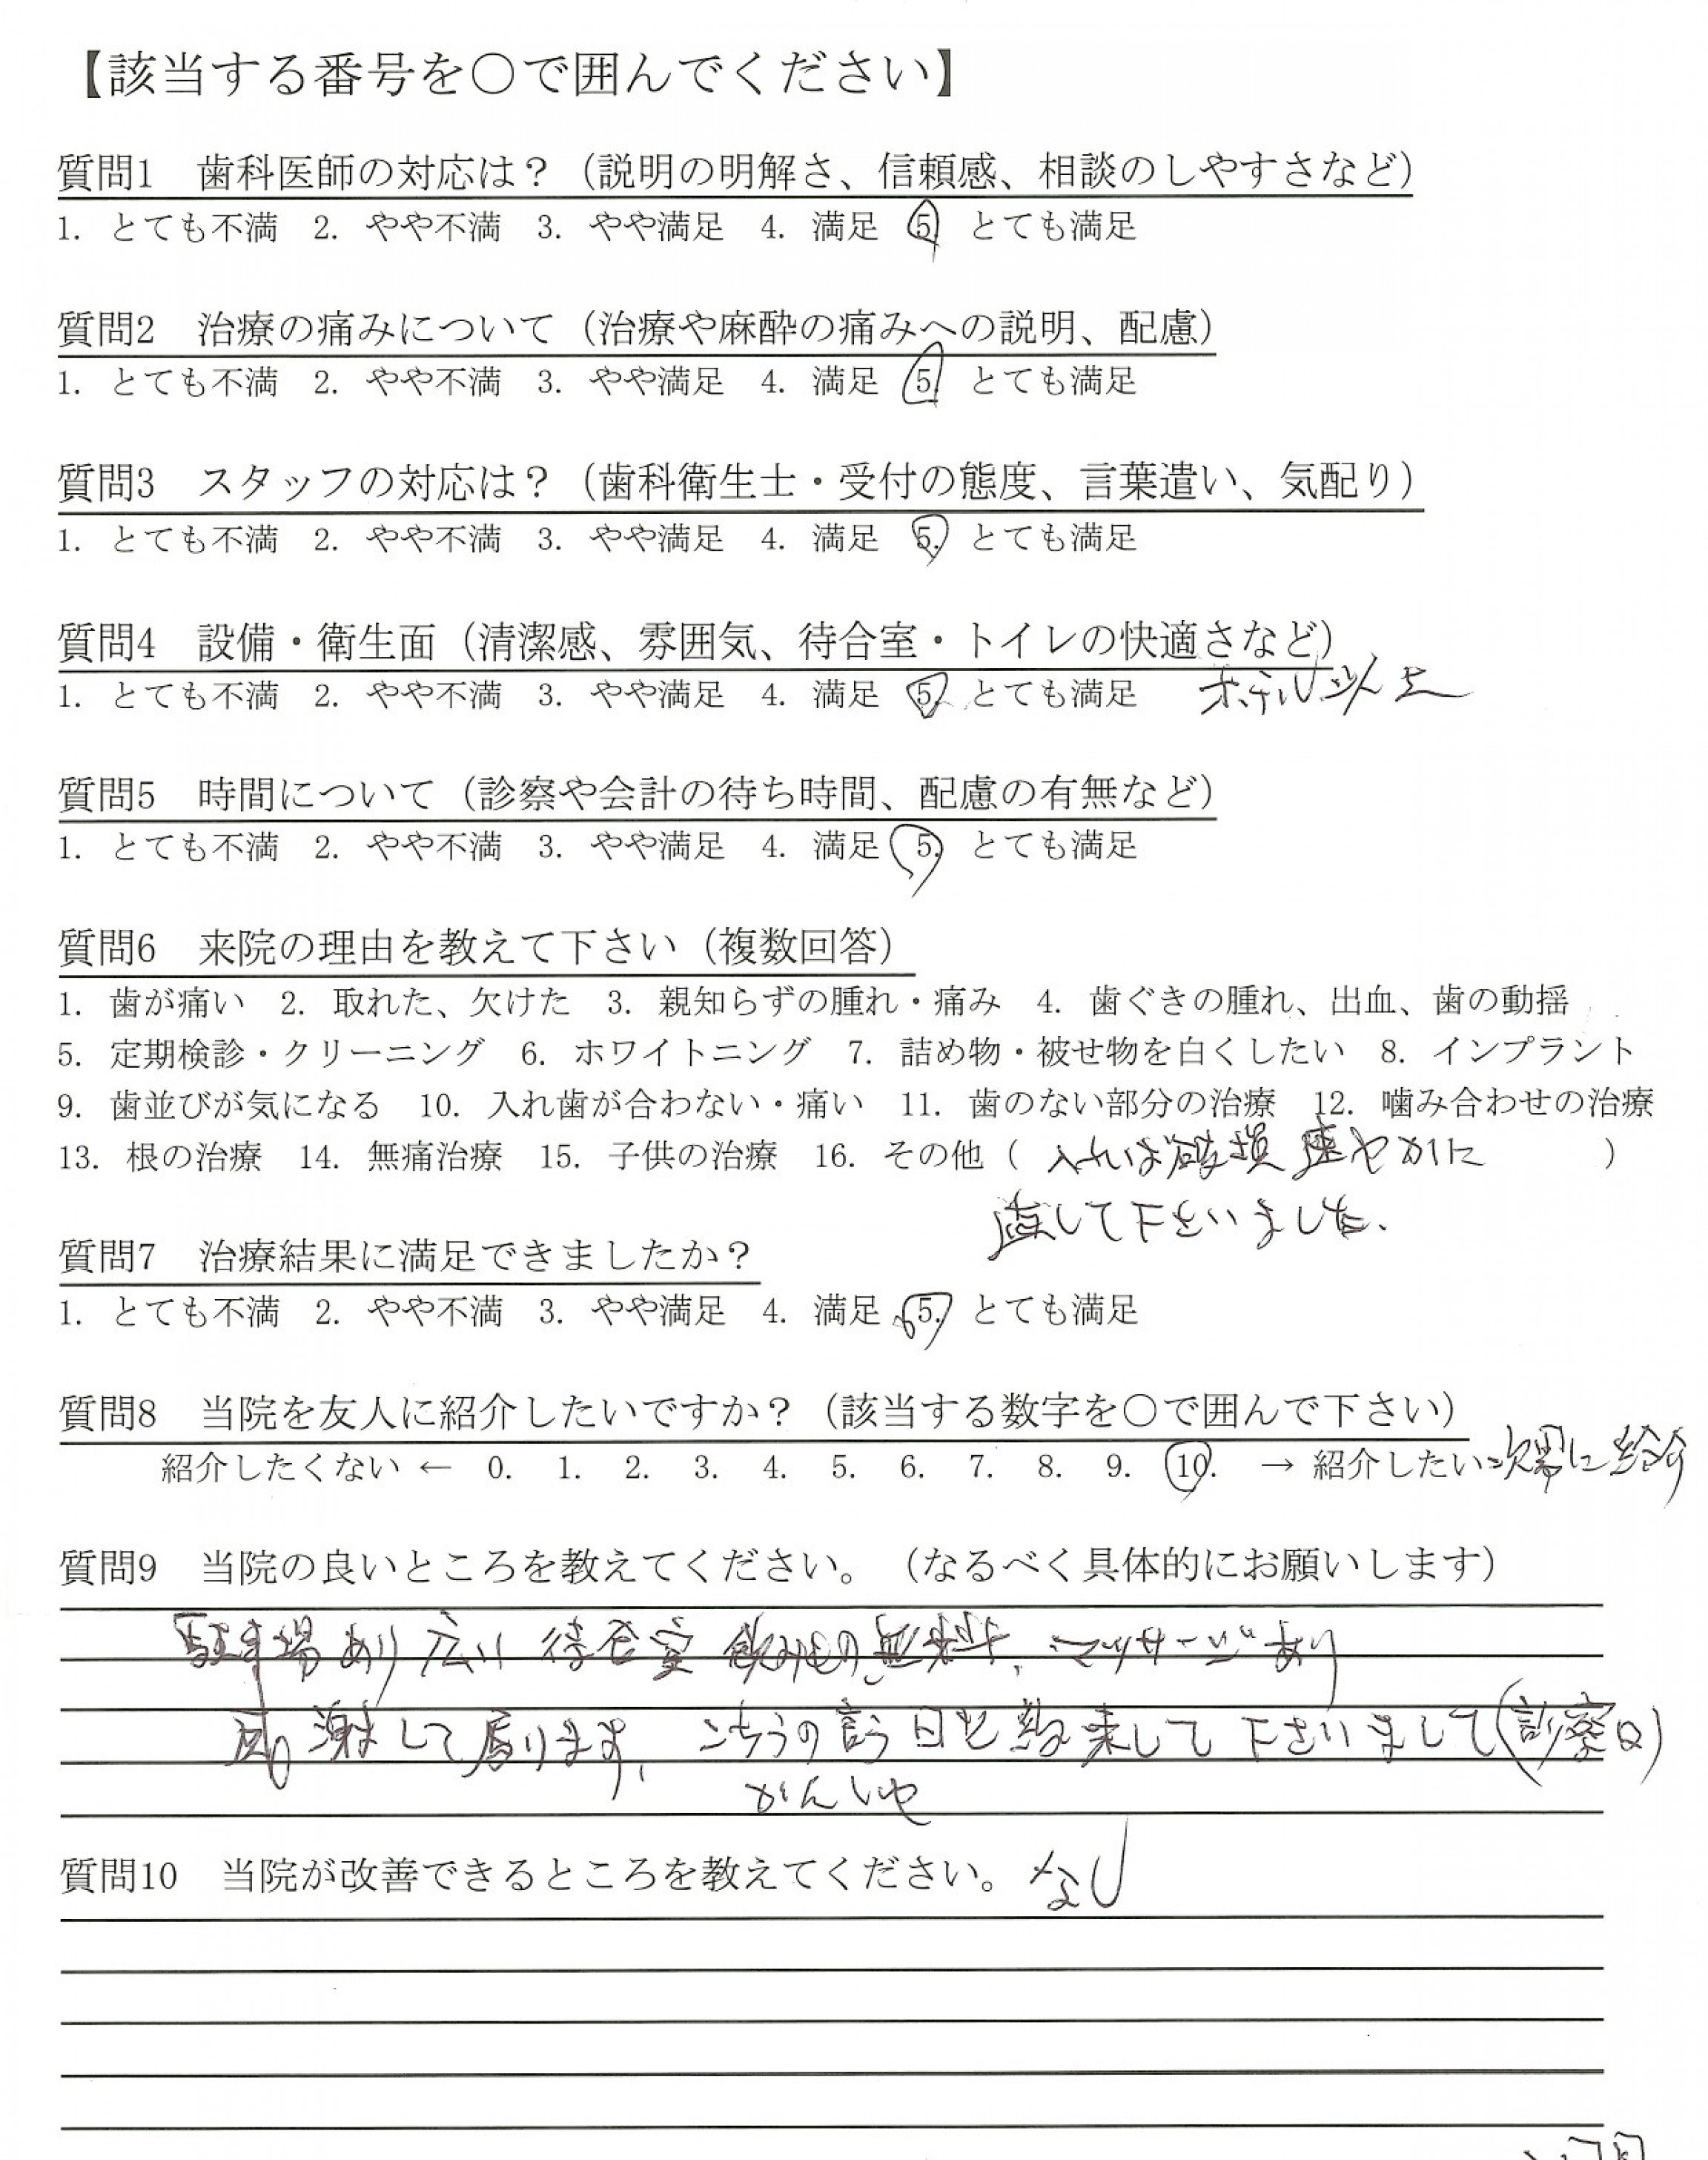 【該当する番号を〇で囲んでください】
質問1 歯科医師の対応は？（説明の明解さ、信頼感、相談のしやすさなど）
1. とても不満 2. やや不満 3. やや満足 4. 満足 5. とても満足
質問2 治療の痛みについて（治療や麻酔の痛みへの説明、配慮）
1. とても不満 2. やや不満 3. やや満足 4. 満足 5. とても満足
質問3 スタッフの対応は？（歯科衛生士・受付の態度、言葉遣い、気配り）
1. とても不満 2. やや不満 3. やや満足 4. 満足 5. とても満足
質問4 設備・衛生面（清潔感、雰囲気、待合室・トイレの快適さなど）
1. とても不満 2. やや不満 3. やや満足 4. 満足 5. とても満足 ホテル以上
質問5 時間について（診察や会計の待ち時間、配慮の有無など）
1. とても不満 2. やや不満 3. やや満足 4. 満足 5. とても満足
質問6 来院の理由を教えて下さい（複数回答）
1. 歯が痛い 2. 取れた、欠けた 3. 親知らずの腫れ・痛み 4. 歯ぐきの腫れ、出血、歯の動揺
5. 定期検診・クリーニング 6. ホワイトニング 7. 詰め物・被せ物を白くしたい 8. インプラント
9. 歯並びが気になる 10. 入れ歯が合わない・痛い 11. 歯のない部分の治療 12. 噛み合わせの治療
13. 根の治療 14. 無痛治療 15. 子供の治療 16. その他（ 入れば破損 速やかに ）
直して下さいました.
質問7 治療結果に満足できましたか？
1. とても不満 2. やや不満 3. やや満足 4. 満足 5. とても満足
質問8 当院を友人に紹介したいですか？（該当する数字を〇で囲んで下さい）
紹介したくない ← 0. 1. 2. 3. 4. 5. 6. 7. 8. 9. 10. → 紹介したい 次男に紹介
質問9 当院の良いところを教えてください。（なるべく具体的にお願いします）
駐車場あり 広い 待合室 飲みもの無料、マッサージあり
感謝して居ります、こちらの言う日を約束して下さいまして(診察日)
かんしゃ
質問10 当院が改善できるところを教えてください。 なし